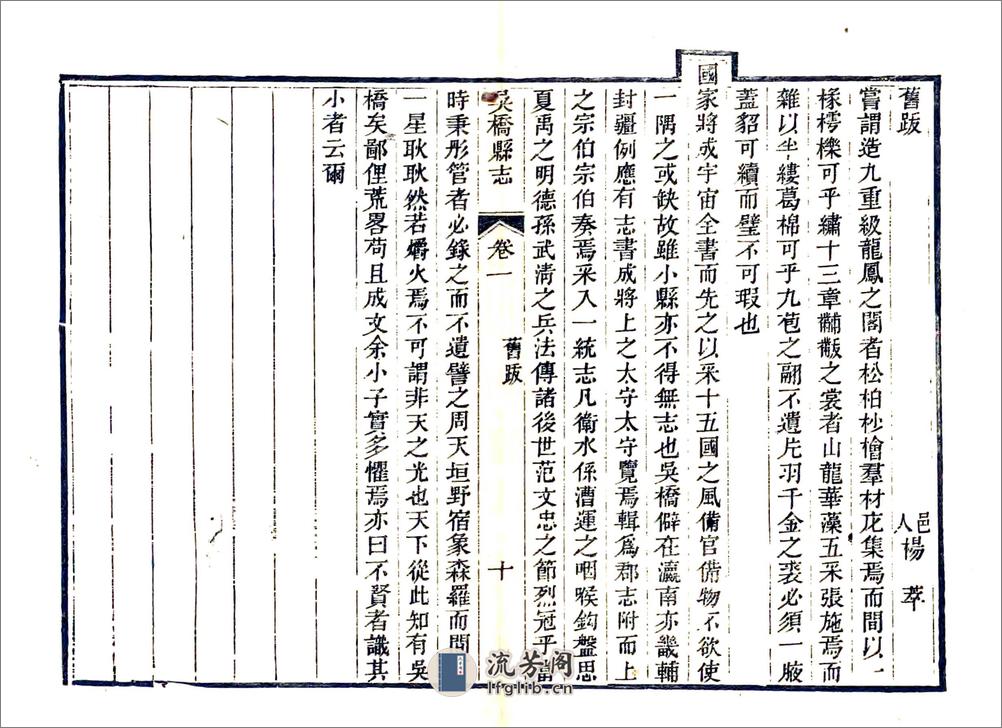 舊跋
邑人楊萃
嘗謂造九重級龍鳳之閣者松柏杪檜羣材庀集焉而間以一
椽樗櫟可乎繡十三章黼黻之裳者山龍華藻五采張施焉而
雜以半縷葛棉可乎九苞之翮不遺片羽千金之裘必須一腋
蓋貂可續而璧不可瑕也
國家將成宇宙全書而先之以采十五國之風備官備物不欲使
一隅之或缺故雖小縣亦不得無志也吳橋僻在瀛南亦畿輔
封疆例應有志書成將上之太守太守覽焉輯爲郡志附而上
之宗伯宗伯奏焉采入一統志凡衛水係漕運之咽喉鈎盤思
夏禹之明德孫武淸之兵法傳諸後世范文忠之節烈冠乎當
吳橋縣志 卷一 舊跋 十
時秉彤管者必錄之而不遺譬之周天垣野宿象森羅而間
一星耿耿然若爝火焉不可謂非天之光也天下從此知有吳
橋矣鄙俚荒畧苟且成文余小子實多懼焉亦曰不賢者識其
小者云爾
流芳阁
lfglib.cn